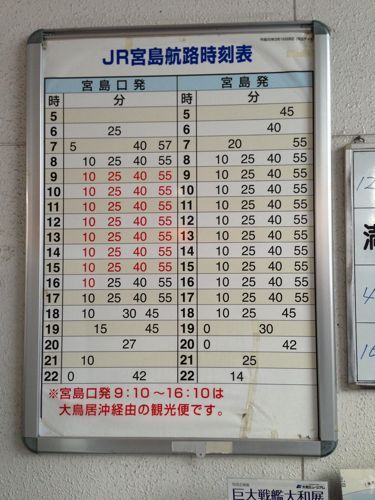 JR宮島航路時刻表
宮島口発 宮島発
時 分 時 分
5 5 45
6 25 6 40
7 5 40 57 7 20 55
8 10 25 40 55 8 10 25 40 55
9 10 25 40 55 9 10 25 40 55
10 10 25 40 55 10 10 25 40 55
11 10 25 40 55 11 10 25 40 55
12 10 25 40 55 12 10 25 40 55
13 10 25 40 55 13 10 25 40 55
14 10 25 40 55 14 10 25 40 55
15 10 25 40 55 15 10 25 40 55
16 10 25 40 55 16 10 25 40 55
17 10 25 40 55 17 10 25 40 55
18 10 30 45 18 10 25 45
19 15 45 19 0 30
20 27 20 0 42
21 10 21 25
22 0 42 22 14
※宮島口発9:10〜16:10は
大鳥居沖経由の観光便です。
巨大戦艦大和展